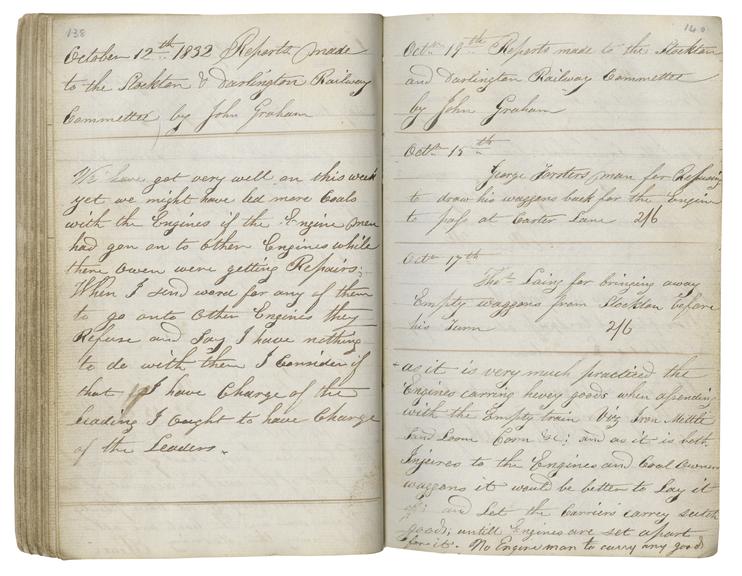 138
October 12th 1832 Reports made
to the Stockton & Darlington Railway
Committee by John Graham
We have got very well on this week
yet we might have led more Coals
with the Engines if the Engine men
had gon on to Other Engines while
there Owen were getting Repairs;
When I send word for any of them
to go onto Other Engines they
Refuse and Say I have nothing
to do with them I Consider if
that I have Charge of the
leading I Ought to have Charge
of the Leaders.
140
Octr 19th Reports made to the Stockton
and Darlington Railway Committee
by John Graham
Octr 15th
George Forsters man for Refusing
to draw his waggons back for the Engine
to pass at Carter Lane 2/6
Octr 17th
Thos Laing for bringing away
Empty waggons from Stockton before
his Turn 2/6
as it is very much practiced the
Engines carring hevey goods when asending
with the Empty train Viz Iron Mettle
Sand Loome Corn &c; and as it is both
Injures to the Engines and Coal Owners
waggons it would be better to Lay it
of; and Let the Carriers carrey sutch
goods; untill Engines are set apart
for it. No Engine man to carry any goods